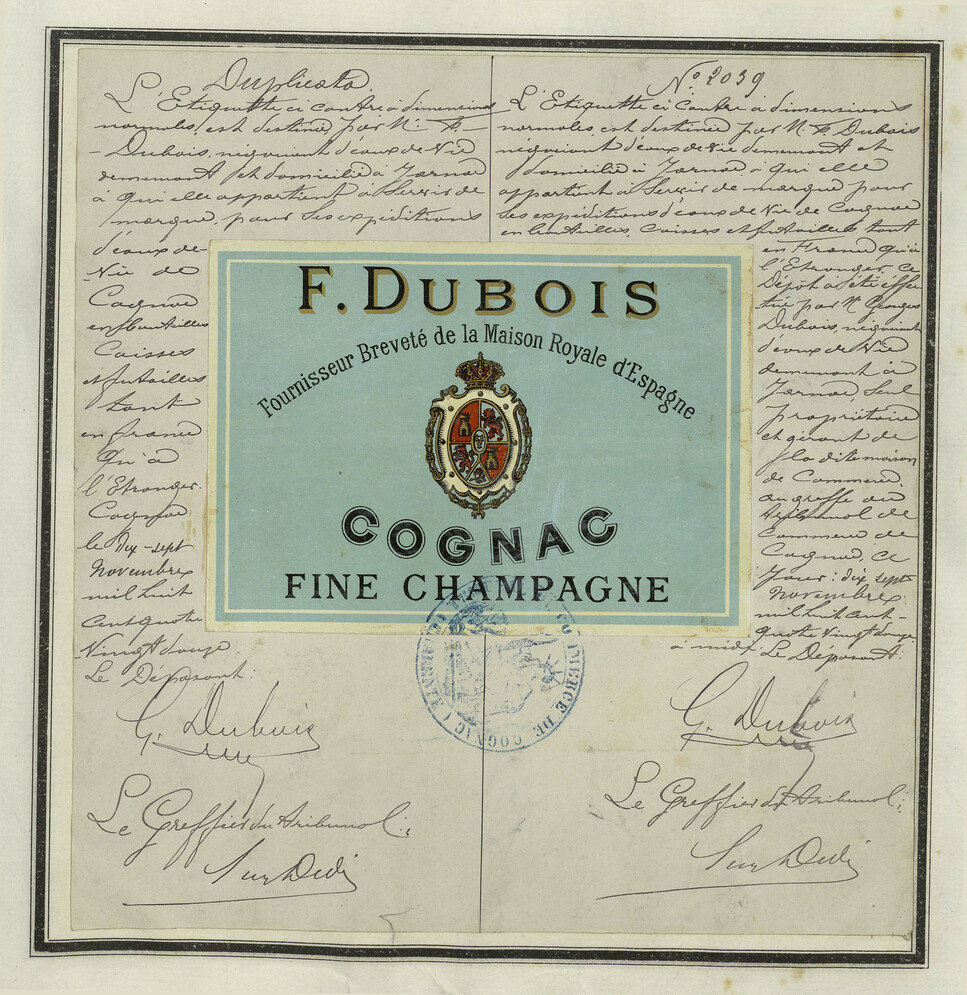 Duplicata.
L'Etiquette ci contre à dimensions
normales, est destinée, par Mr. F.
Dubois, négociant d'eaux de Vie
demeurant et domicilié à Jarnac
à qui elle appartient à Servir de
marque, pour ses expéditions
d'eaux-de-
Vie de
Cognac
en bouteilles
Caisses
et futailles
tant
en france
qu'à
l'Etranger.
Cognac
le dix-sept
Novembre
mil huit
cent quatre
Vingt douze.
Le Déposant:
G. Dubois
Le Greffier du Tribunal:
No 2039
L'Etiquette ci Contre à dimensions
normales, est destinée par M. F. Dubois
négociant d'eaux de Vie demeurant et
domicilié à Jarnac à qui elle
appartient à Servir de marque pour
ses expéditions d'eaux de Vie de Cognac
en bouteilles, Caisses et futailles tant
en France qu'à
l'Etranger. Ce
Dépôt a été effec
tué par Mr Georges
Dubois, négociant
d'eaux de Vie
demeurant à
Jarnac, Seul
propriétaire
et gérant de
la dite maison
de Commerce,
au greffe du
Tribunal de
Commerce de
Cognac, ce
Jour: dix sept
Novembre
mil huit cent
quatre Vingt douze
à midi. Le Déposant:
G. Dubois
Le Greffier du Tribunal:
F. DUBOIS
Fournisseur Breveté de la Maison Royale d'Espagne
COGNAC
FINE CHAMPAGNE
COMMERCE DE COGNAC (CHARENTE)